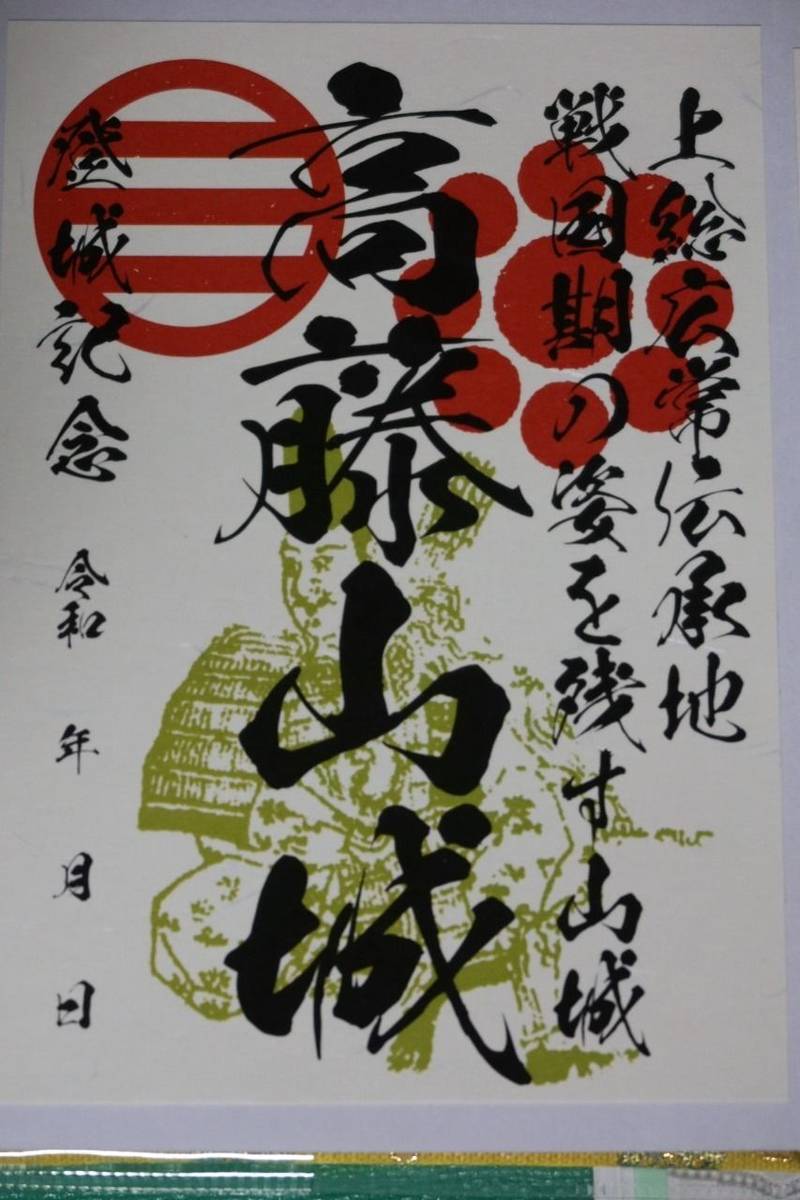 上総広常伝承地
戦国期の姿を残す山城
高藤山城
登城記念 令和 年 月 日